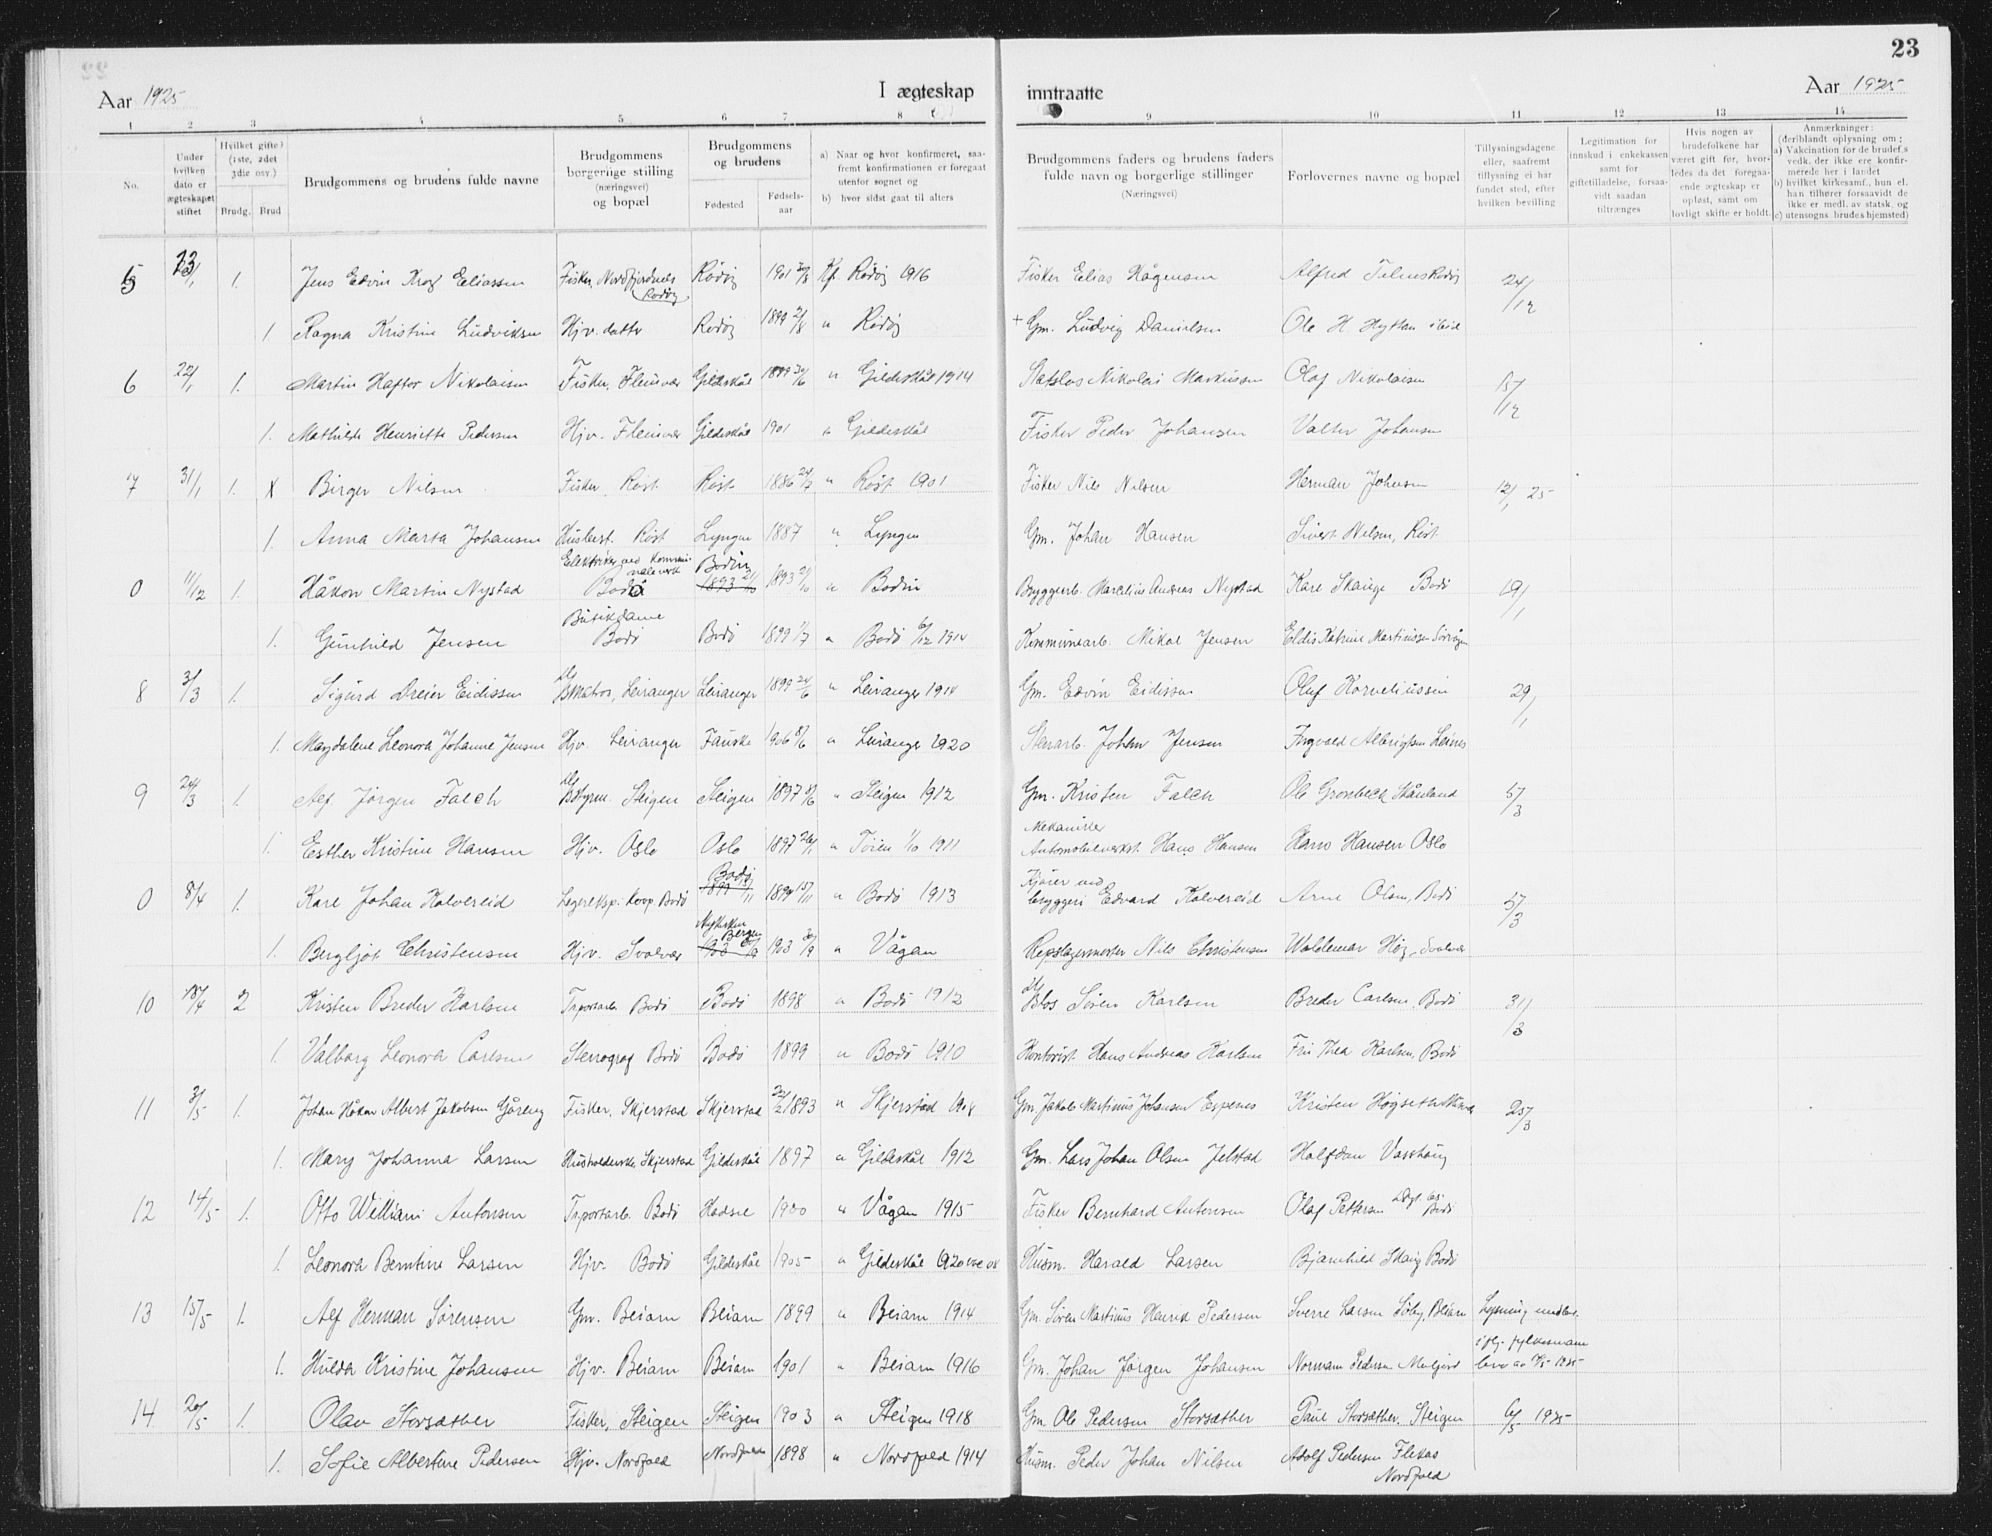 23
Aar 1925 I ægteskap inntraatte Aar 1925
1 2 3 4 5 6 7 8 9 10 11 12 13 14
No.
Under hvilken dato er ægteskapet stiftet
Hvilket gifte? (1ste, 2det 3die osv.)
Brudg. Brud
Brudgommens og brudens fulde navne
Brudgommens borgerlige stilling (næringsvei) og bopæl
Brudgommens og brudens
Fødested Fødsels-aar
a) Naar og hvor konfirmeret, saa-fremt konfirmationen er foregaat utenfor sognet og
b) hvor sidst gaat til alters
Brudgommens faders og brudens faders fulde navn og borgerlige stillinger (Næringsvei)
Forlovernes navne og bopæl
Tillysningsdagene eller, saafremt tillysning ei har fundet sted, efter hvilken bevilling
Legitimation for innskud i enkekassen samt for giftetilladelse, forsaa-vidt saadan tiltrænges
Hvis nogen av brudefolkene har været gift før, hvor-ledes da det foregaa-ende ægteskap er opløst, samt om lovligt skifte er holdt.
Anmærkninger: (deriblandt oplysning om:
a) Vakcination for de brudef.s vedk. der ikke ere konfir-merede her i landet
b) hvilket kirkesamf., hun el. han tilhører forsaavidt de ikke er medl. av statsk. og
c) utensogns. brudes hjemsted)
5 23/1 1. Jens Edvin Krog Eliassen Fisker, Nordfjordnes Rødøy Rødøy 1901 Kf. Rødøy 1916 Fisker Elias Hågensen Alfred Telnes Rødøy 24/12
1 Ragna Kristine Ludviksen Hjv. datter Rødøy 1899 " Rødøy + Gm. Ludvig Danielsen Ole H. Hyttan
6 22/1 1. Martin Haftor Nikolaisen Fisker, Fleinvær Gildeskål 1899 " Gildeskål 1914 Nikolai Markussen Olaf Nikolaisen 15/12
1. Mathilde Henriette Pedersen Hjv. Fleinvær Gildeskål 1901 " Gildeskål Fisker Peder Johansen Valter Johansen
7 31/1 1. X Birger Nilsen Fisker, Røst Røst 1886 24/7 " Røst 1901 Fisker Nils Nilsen Herman Johnsen 12/1 25
1. Anna Marta Johansen Husbest. Røst Lyngen 1887 " Lyngen Gm. Johan Hansen Sivert Nilsen, Røst
0 11/12 1. Håkon Martin Nystad Elektriker ved kommunale verk Bodø Bodin 1893 21/10 " Bodin Bryggearb. Marcelius Andreas Nystad Kåre Skauge Bodø 19/1
1. Gunhild Jensen Butikdame Bodø Bodø 1899 1/7 " Bodø 6/12 1914 Kommunearb. Mikal Jensen Eldis Katrine Martinussen
8 3/3 1. Sigurd Dreier Eidissen Leiranger Leiranger 1899 24/6 " Leiranger 1914 Gm. Edvin Eidissen Oluf Korneliussen 29/1
1. Magdalene Leonora Johanne Jensen Hjv. Leiranger Fauske 1906 8/6 " Leiranger 1920 Stenarb. Johan Jensen Ingvald Albrigtsen Leines
9 24/3 1. Alf Jørgen Falch Steigen Steigen 1897 8/6 " Steigen 1912 Gm. Kristen Falch Ole Grønbeck Skånland 5/3
1. Esther Kristine Hansen Hjv. Oslo Oslo 1897 26/1 " Tøien 1/10 1911 Mekaniker Automobilverkst. Hans Hansen Hans Hansen Oslo
0 8/4 1. Kåre Johan Kalvereid Lagereksp. Koop. Bodø Bodø 1899 15/11 " Bodø 1913 Kjører ved bryggeri Edvard Kalvereid Arne Olsen, Bodø 5/3
1. Bergljot Christensen Hjv. Svolvær Nykirken Bergen 1903 30/9 " Vågan Repslagermester Nils Christensen Waldemar Høg, Svolvær
10 18/4 2 Kristen Breder Karlsen Trportarb. Bodø Bodø 1898 " Bodø 1912 Søren Karlsen Breder Carlsen, Bodø 31/3
1. Valborg Leonora Carlsen Stenograf Bodø Bodø 1899 " Bodø 1910 Kontorist Hans Andreas Karlsen Fru Thea Karlsen, Bodø
11 3/5 1. Johan Håkon Albert Jakobsen Gåreng Fisker, Skjerstad Skjerstad 22/2 1893 " Skjerstad 1908 Gm Jakob Martinus Johansen Espenes Kristen Høgseth 25/3
1. Mary Johanna Larsen Husholderske Skjerstad Gildeskål 1897 " Gildeskål 1912 Gm. Lars Johan Olsen Jelstad Halfdan Vasshaug
12 14/5 1. Otto William Antonsen Trportarb. Bodø Hadsel 1900 " Vågan 1915 Fisker Bernhard Antonsen Olaf Pettersen Bodø
1. Leonora Berntine Larsen Hjv. Bodø Gildeskål 1905 " Gildeskål 1920 Husm. Harald Larsen Bjarnhild Skaug Bodø
13 15/5 1. Alf Herman Sørensen Gm. Beiarn Beiarn 1899 " Beiarn 1914 Gm. Søren Martinus Henrik Pedersen Sverre Larsen Soløy, Beiarn Lysning undlat.
1. Hulda Kristine Johansen Hjv. Beiarn Beiarn 1901 " Beiarn 1916 Gm. Johan Jørgen Johansen Normann Pedersen ifølg. fylkesmann
14 20/5 1. Olav Storsæther Fisker, Steigen Steigen 1903 " Steigen 1918 Gm. Ole Pedersen Storsæther Paul Storsæther, Steigen 6/5 1925
1. Sofie Albertine Pedersen Hjv. Nordfold Nordfold 1898 " Nordfold 1914 Husm. Peder Johan Nilsen Adolf Pedersen Flekas Nordfold